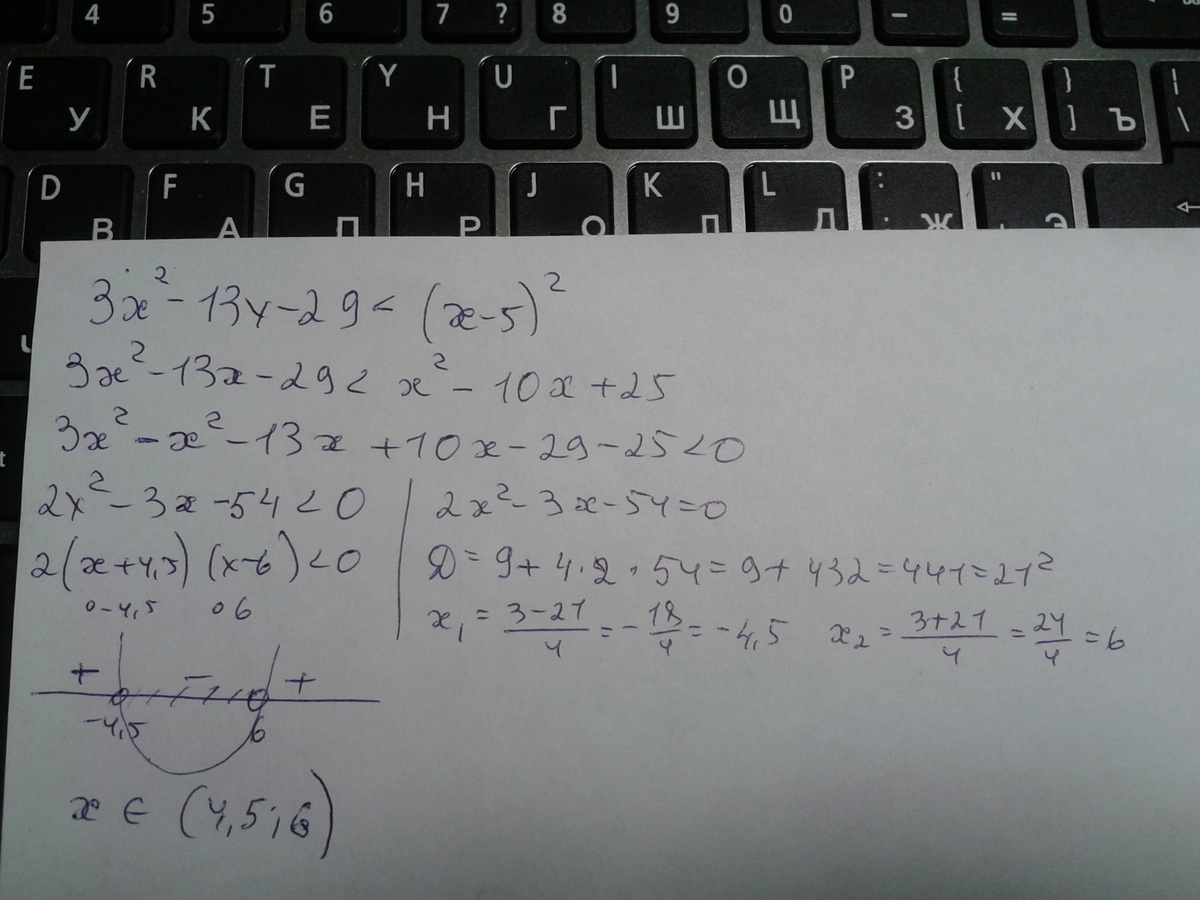 4 5 6 7 ? 8 9 0 - =
E У R К T Е Y Н U Г I Ш O Щ P З { [ Х } ] Ъ | \
D В F А G П H Р J О K Л L Д : ; Ж " ' Э
3x² - 13x - 29 < (x-5)²
3x² - 13x - 29 < x² - 10x + 25
3x² - x² - 13x + 10x - 29 - 25 < 0
2x² - 3x - 54 < 0
2(x+4,5)(x-6) < 0
0 -4,5 0 6
2x² - 3x - 54 = 0
D = 9 + 4·2·54 = 9 + 432 = 441 = 21²
x₁ = (3-21)/4 = -18/4 = -4,5 x₂ = (3+21)/4 = 24/4 = 6
+ - +
-4,5 6
x ∈ (4,5; 6)